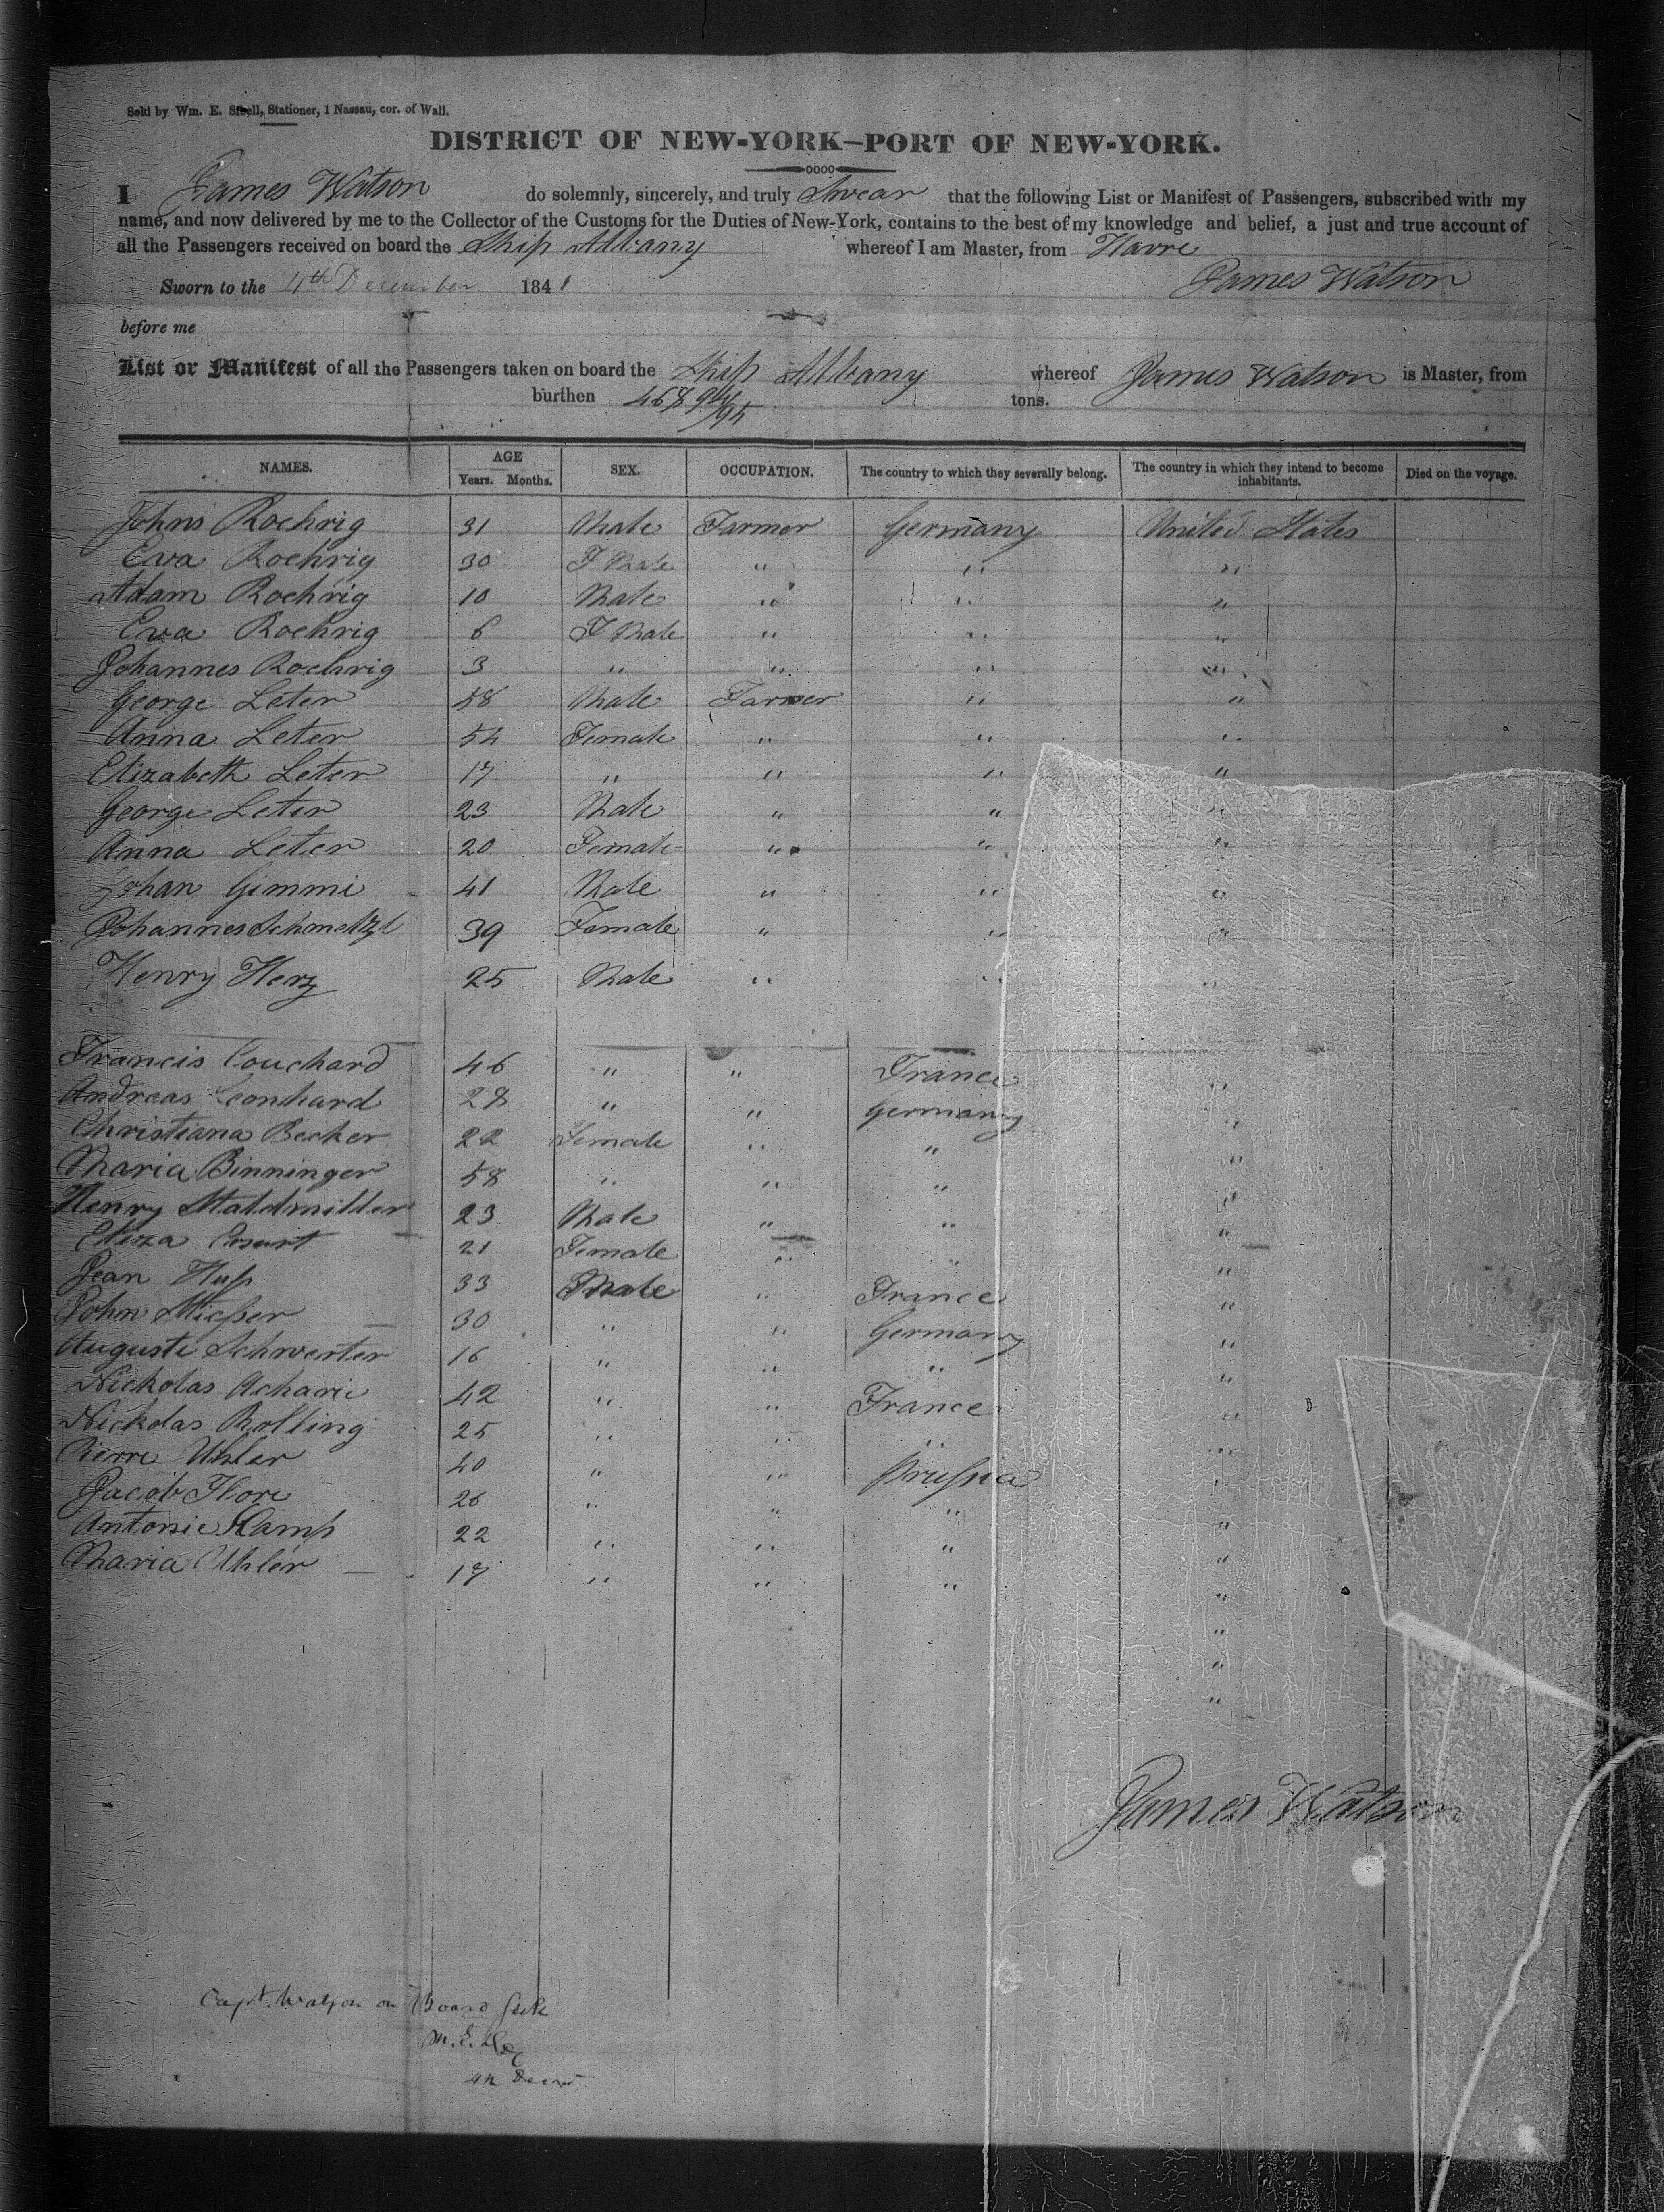 Sold by Wm. E. Sibell, Stationer, 1 Nassau, cor. of Wall.
DISTRICT OF NEW-YORK—PORT OF NEW-YORK.
I James Watson do solemnly, sincerely, and truly Swear that the following List or Manifest of Passengers, subscribed with my
name, and now delivered by me to the Collector of the Customs for the Duties of New-York, contains to the best of my knowledge and belief, a just and true account of
all the Passengers received on board the Ship Albany whereof I am Master, from Havre
Sworn to the 4th December 1841 James Watson
before me
List or Manifest of all the Passengers taken on board the Ship Albany whereof James Watson is Master, from
burthen 468 94/95 tons.
NAMES. AGE Years. Months. SEX. OCCUPATION. The country to which they severally belong. The country in which they intend to become inhabitants. Died on the voyage.
Johns Roehrig 31 Male Farmer Germany United States
Eva Roehrig 30 F Male " " "
Adam Roehrig 10 Male " " "
Eva Roehrig 6 F Male " " "
Johannes Roehrig 3 " " " "
George Leter 58 Male Farmer " "
Anna Leter 54 Female " " "
Elizabeth Leter 17 " " " "
George Leter 23 Male " " "
Anna Leter 20 Female " " "
Johan Gimmi 41 Male " " "
Johannes 39 Female " " "
Henry Herz 25 Male " " "
Francis Couchard 46 " " France "
Andreas Leonhard 28 " " Germany "
Christiana Becker 22 Female " " "
Maria Binninger 58 " " " "
Henry Staldmiller 23 Male " " "
Eliza 21 Female " " "
Jean Huss 33 Male " France "
John Miesser 30 " " Germany "
Auguste Schwerter 16 " " " "
Nickolas Acharie 42 " " France "
Nickolas Rolling 25 " " " "
Pierre Uhler 40 " " Prussia "
Jacob Flore 26 " " " "
Antonie Kamp 22 " " " "
Maria Uhler 17 " " " "
"
"
"
James Watson
Capt. Watson on Board Sick
4th Decr